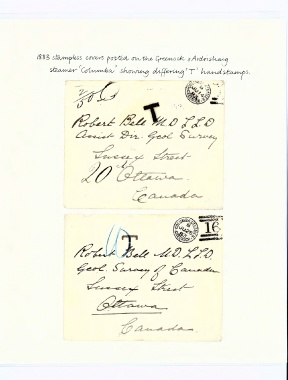 1883 stampless covers posted on the Greenock & Ardrishaig
steamer 'Columba' showing differing 'T' handstamps.
T
Robert Bell M.D. L.L.D.
Assist Dir. Geol Survey
Sussex Street
20 Ottawa.
Canada
T
16
Robert Bell M.D. L.L.D.
Geol. Survey of Canada
Sussex Street
Ottawa
Canada